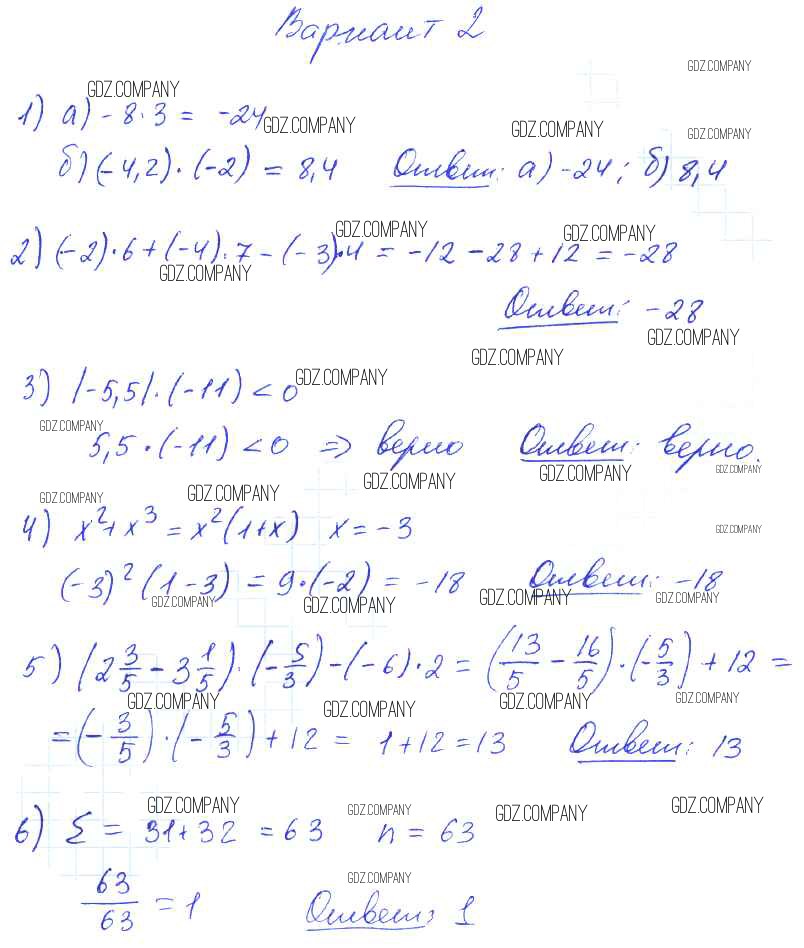 Вариант 2
GDZ.COMPANY
GDZ.COMPANY
1) а) -8·3 = -24
GDZ.COMPANY
GDZ.COMPANY
GDZ.COMPANY
б) (-4,2)·(-2) = 8,4 Ответ: а) -24; б) 8,4
GDZ.COMPANY
GDZ.COMPANY
2) (-2)·6+(-4)·7-(-3)·4 = -12-28+12 = -28
GDZ.COMPANY
Ответ: -28
GDZ.COMPANY
GDZ.COMPANY
3) |-5,5|·(-11) < 0
GDZ.COMPANY
GDZ.COMPANY
5,5·(-11) < 0 => верно Ответ: верно.
GDZ.COMPANY
GDZ.COMPANY
GDZ.COMPANY
GDZ.COMPANY
GDZ.COMPANY
4) x²+x³ = x²(1+x) x = -3
GDZ.COMPANY
(-3)²(1-3) = 9·(-2) = -18 Ответ: -18
GDZ.COMPANY
GDZ.COMPANY
GDZ.COMPANY
GDZ.COMPANY
5) (2 3/5 - 3 1/5)·(-5/3)-(-6)·2 = (13/5 - 16/5)·(-5/3)+12 =
GDZ.COMPANY
GDZ.COMPANY
GDZ.COMPANY
GDZ.COMPANY
= (-3/5)·(-5/3)+12 = 1+12 = 13 Ответ: 13
GDZ.COMPANY
GDZ.COMPANY
GDZ.COMPANY
GDZ.COMPANY
6) Σ = 31+32 = 63 n = 63
GDZ.COMPANY
63/63 = 1 Ответ: 1